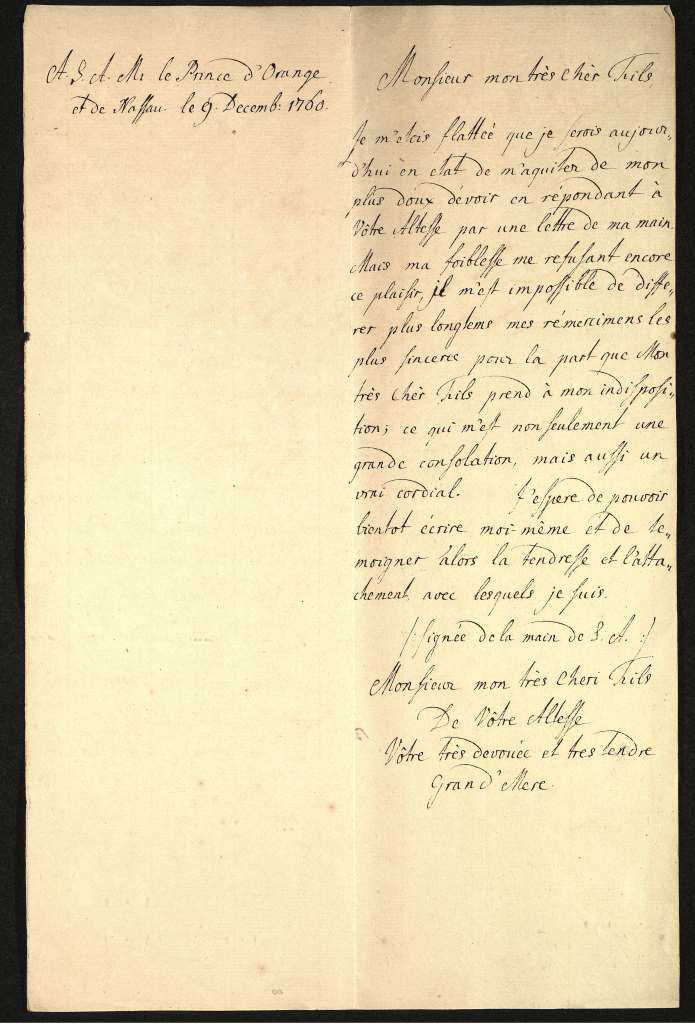 A. S. A. Mr. le Prince d'Orange
et de Nassau. le 9. Decemb: 1760.
Monsieur mon très chèr Fils,
Je m'etois flattée que je serois aujour„
d'hui en etat de m'aquiter de mon
plus doux dévoir en répondant à
Vôtre Altesse par une lettre de ma main.
Mais ma foiblesse me refusant encore
ce plaisir, il m'est impossible de diffe„
rer plus longtems mes rémercimens les
plus sinceres pour la part que Mon
très Chèr Fils prend à mon indisposi„
tion; ce qui m'est non seulement une
grande consolation, mais aussi un
vrai cordial. J'espere de pouvoir
bientot écrire moi-même et de te„
moigner alors la tendresse et l'atta„
chement avec lesquels je suis.
/: signée de la main de S. A. :/
Monsieur mon très cheri Fils
De Vôtre Altesse
Vôtre très devouée et tres tendre
Grand' Mere.